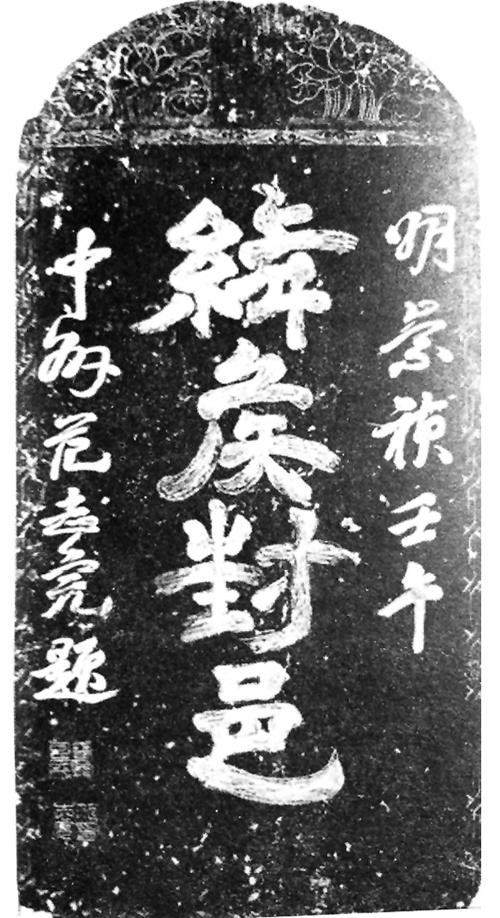 明崇禎壬午
絳侯封邑
中 范志完題